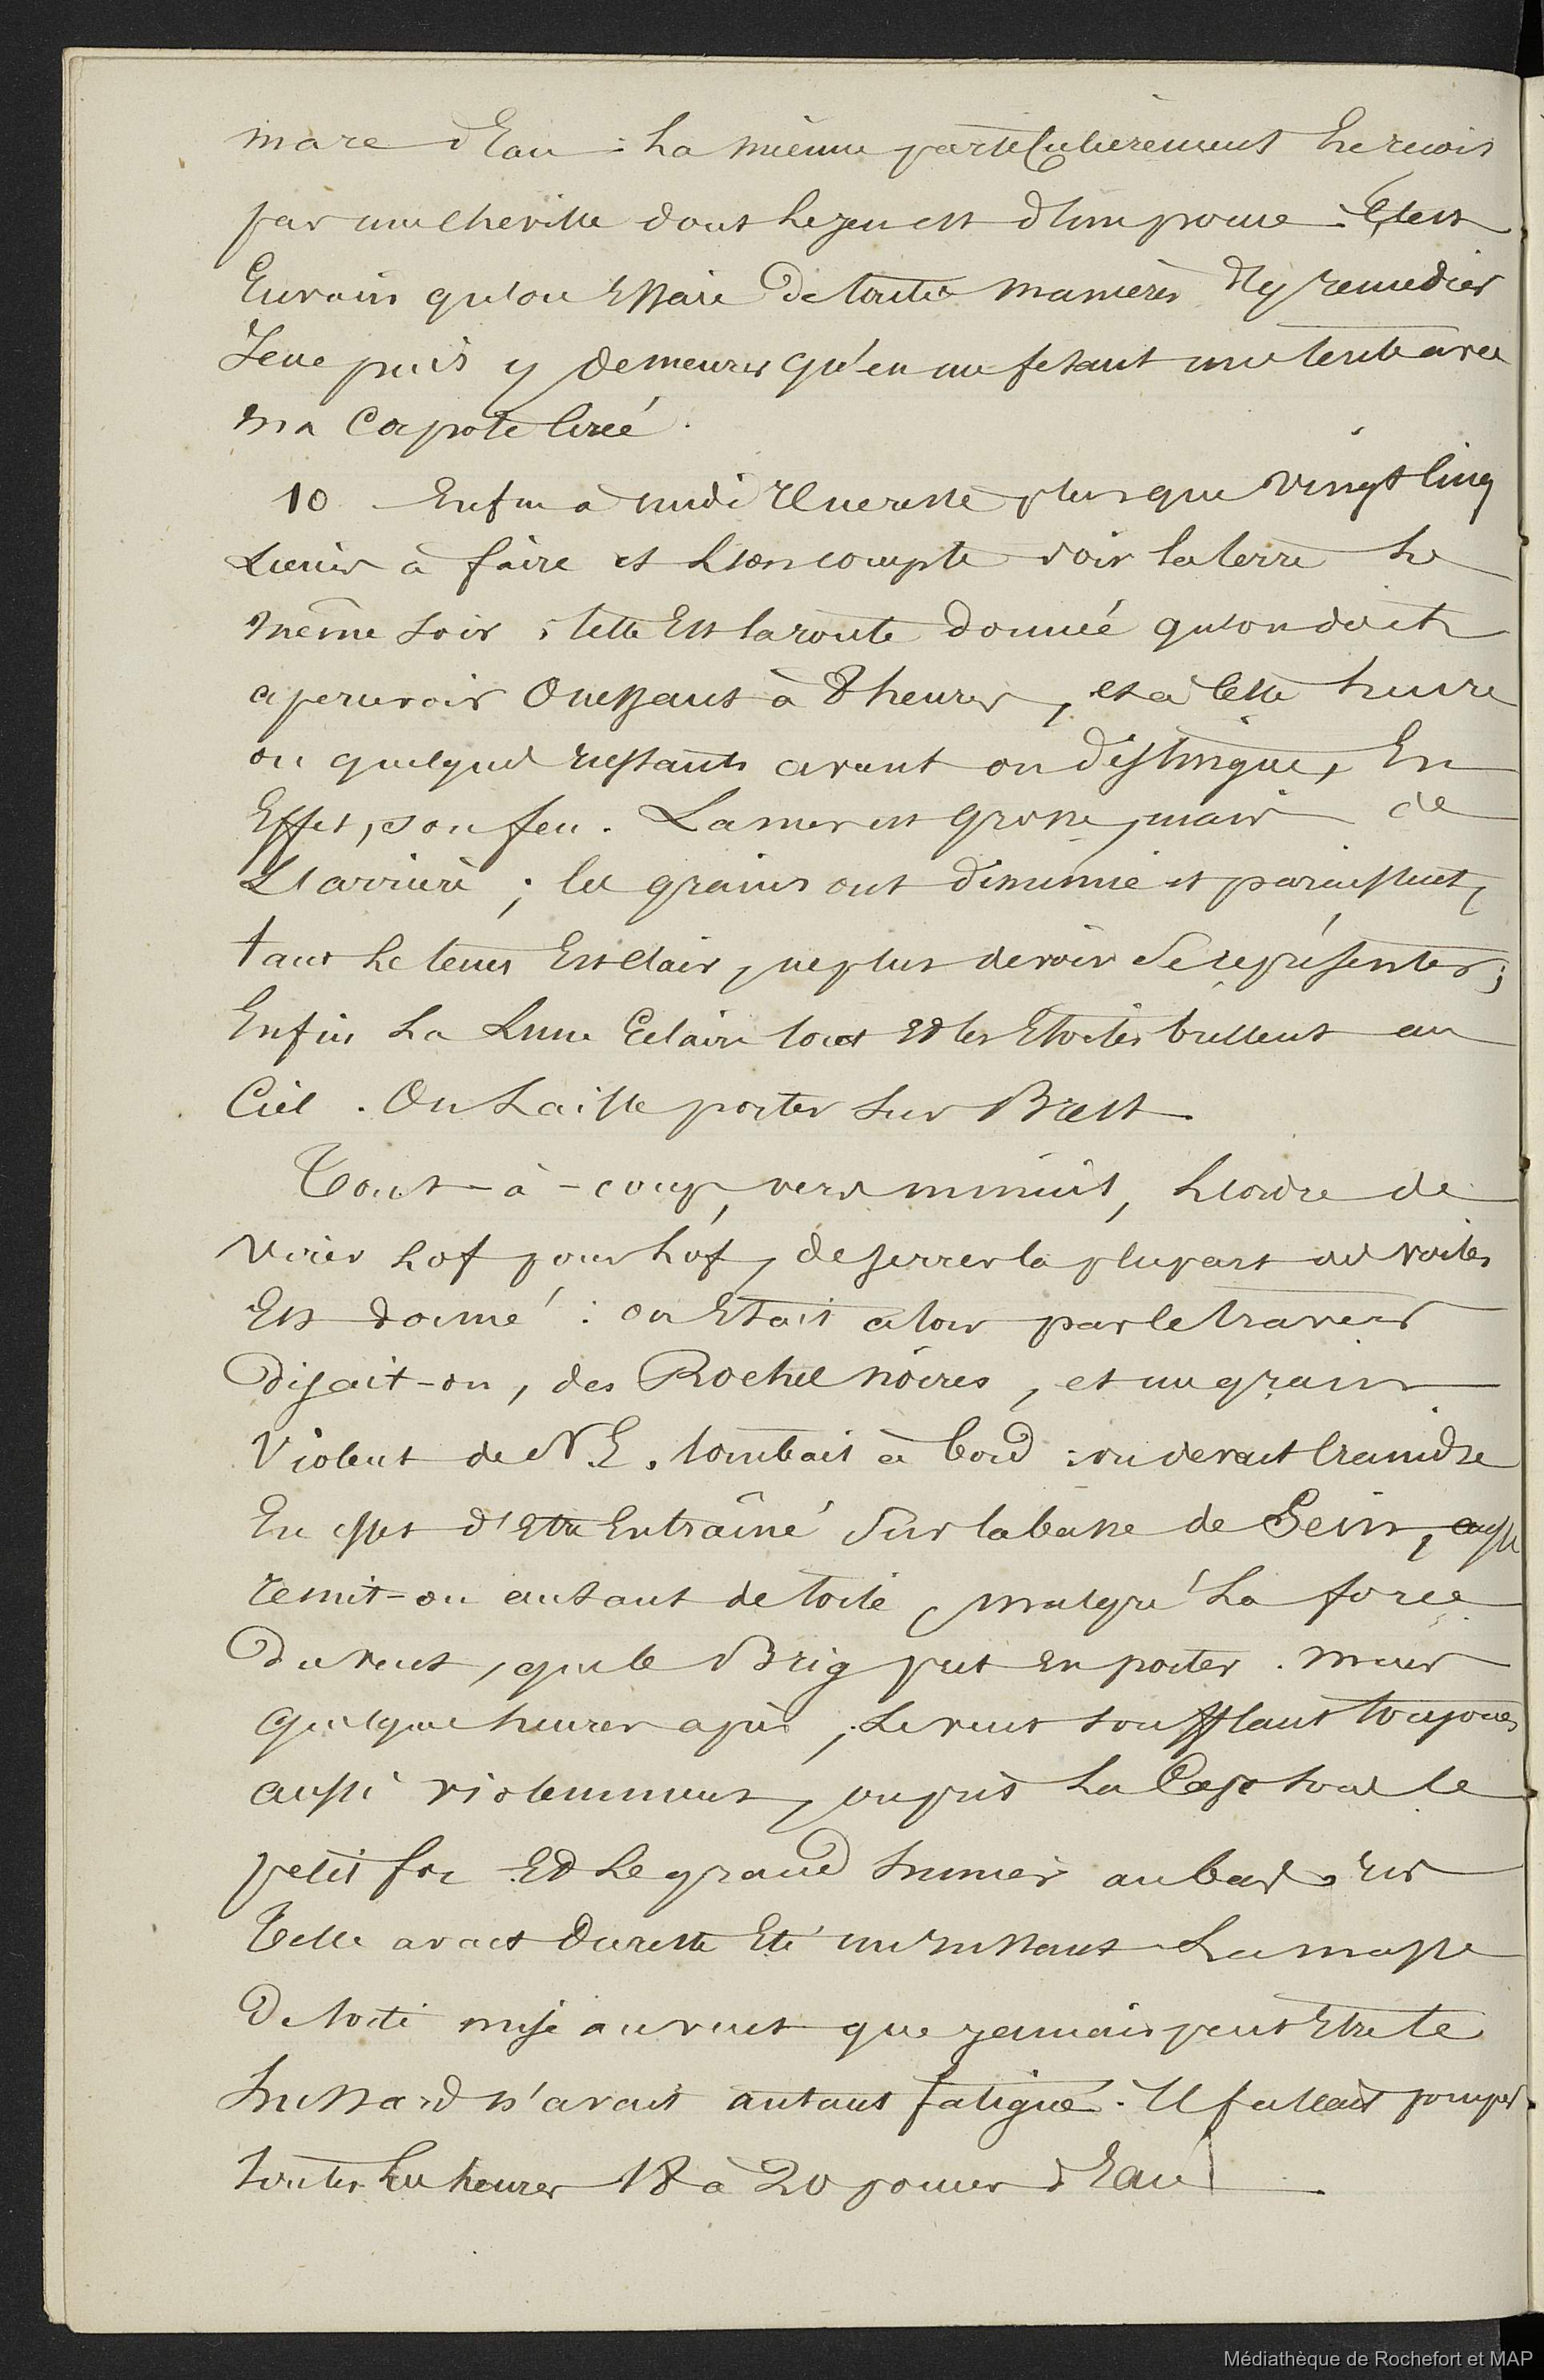 mare d'Eau : La mienne particulièrement Le reçois
par une cheville dont le jeu est d'un pouce. C'est
Envain qu'on Essaie De toutes manières d'y remedier
Je ne puis y demeurer qu'en me fesant une tente avec
ma Capote Cirée.
10 - Enfin à midi Il ne reste plus que vingt Cinq
Lieues à faire et L'on compte voir la terre Le
même soir, telle Est la route donnée qu'on doit
apercevoir Ouessant à 8 heures, et à Cette heure
ou quelques instants avant on distingue, En
Effet, son feu. La mer est grosse, mais de
L'arrière ; les grains ont diminué et paraissent,
tant Le tems Est clair, ne plus devoir Se représenter ;
Enfin La Lune Eclaire tout Et les Etoiles brillent au
Ciel. On Laisse porter Sur Brest.
Tout-à-coup, vers minuit, L'ordre de
Virer Lof pour Lof, de serrer la plupart des voiles
Est donné : on Etait alors par le travers
Disait-on, des Roches noires, et un grain
Violent de N.E. tombait à bord : on devait Craindre
En effet d'Etre Entraîné Sur la basse de Sein, aussi
remit-on autant de toile, malgré La force
Du vent, que le Brig put en porter. Mais
quelques heures après, Le vent soufflant toujours
aussi violemment, on prit La Cape sous le
petit foc Et Le grand hunier au bas Ris
Telle avait Du reste Eté un instant La masse
De toile mise au vent que jamais peut Etre le
Hussard n'avait autant fatigué. Il fallait pomper
toutes Les heures 18 à 20 pouces d'Eau.
Médiathèque de Rochefort et MAP